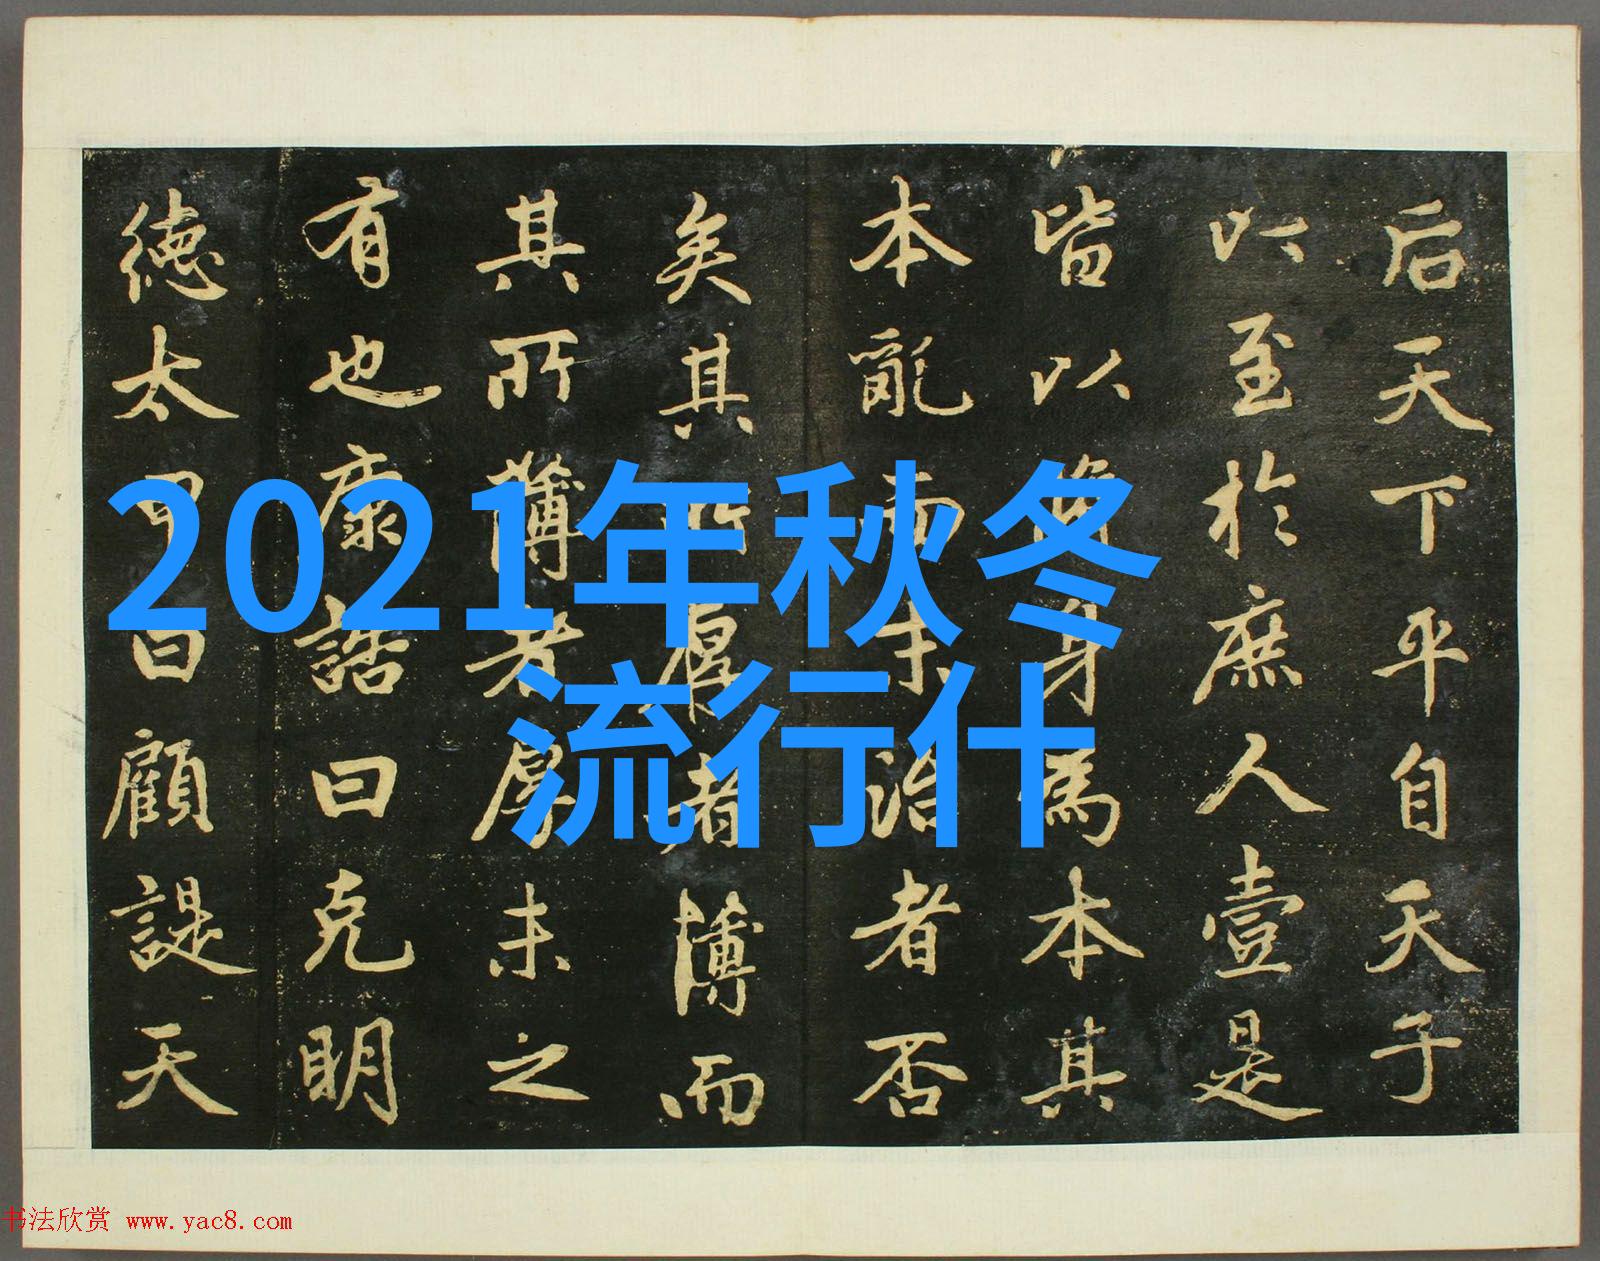 2021年秋冬
流行什
后天下平自天子
以至於庶人壹是
皆以脩身為本其
本亂而末治者否
矣其所厚者薄而
其所薄者厚未之
有也康誥曰克明
德太甲曰顧諟天
书法欣赏 www.yac8.com